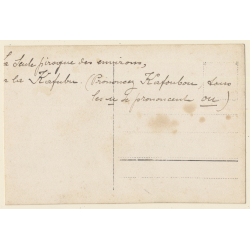 Seule pirogue des environs,
la Kafubu. (Prononcez Kafoubou, tous
les u se prononcent ou)